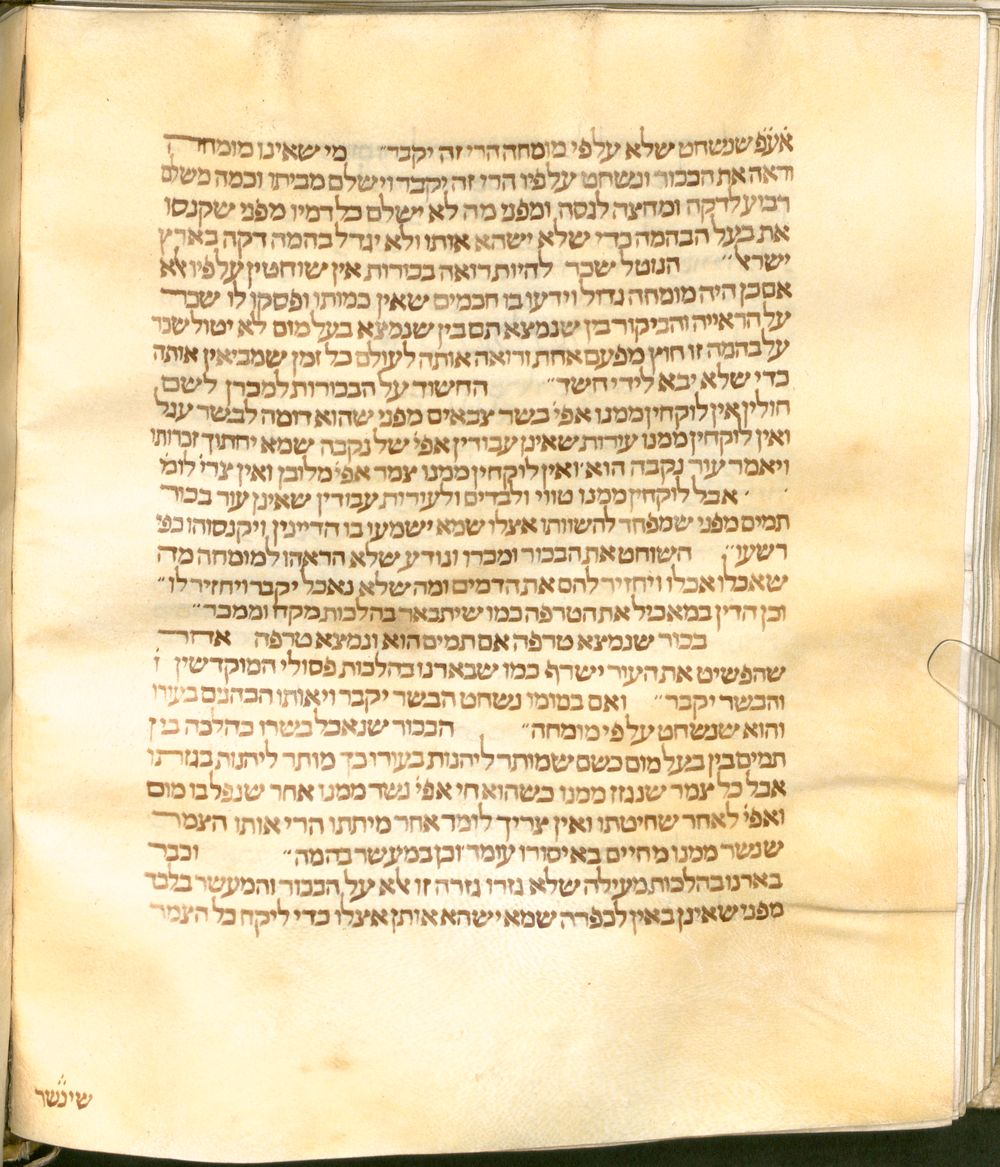 אע̇פ̇ שנשחט שלא על פי מומחה הרי זה יקבר״ מי שאינו מומחה
וראה את הבכור ונשחט על פיו הרי זה יקבר וישלם מביתו וכמה משלם
רבוע לדקה ומחצה לגסה ומפני מה לא ישלם כל דמיו מפני שקנסו
את בעל הבהמה כדי שלא ישהא אותו ולא יגדל בהמה דקה בארץ
ישראל״ הנוטל שכר להיות רואה בכורות אין שוחטין על פיו אלא
אם כן היה מומחה גדול וידעו בו חכמים שאין כמותו ופסקו לו שכר
על הראייה והביקור בין שנמצא תם בין שנמצא בעל מום לא יטול שכר
על בהמה זו חוץ מפעם אחת ורואה אותה לעולם כל זמן שמביאין אותה
כדי שלא יבא לידי חשד״ החשוד על הבכורות למכרן לשם
חולין אין לוקחין ממנו אפי׳ בשר צבאים מפני שהוא דומה לבשר עגל
ואין לוקחין ממנו עורות שאינן עבודין אפי׳ של נקבה שמא יחתוך זכרותו
ויאמר עור נקבה הוא ואין לוקחין ממנו צמר אפי׳ מלובן ואין צרי׳ לומ׳
אבל לוקחין ממנו טווי ולבדים ולעורות עבודין שאינן עור בכור
תמים מפני שמפחד להשוותו אצלו שמא ישמעו בו הדיינין ויקנסוהו כפי
רשעו״ השוחט את הבכור ומכרו ונודע שלא הראהו למומחה מה
שאכלו אכלו ויחזיר להם את הדמים ומה שלא נאכל יקבר ויחזיר לו״
וכן הדין במאכיל את הטרפה כמו שיתבאר בהלכות מקח וממכר״
בכור שנמצא טרפה אם תמים הוא ונמצא טרפה אחר
שהפשיט את העור ישרף כמו שבארנו בהלכות פסולי המוקדשין
והבשר יקבר״ ואם במומו נשחט הבשר יקבר ויאותו הכהנים בעורו
והוא שנשחט על פי מומחה״ הבכור שנאכל בשרו כהלכה בין
תמים בין בעל מום כשם שמותר ליהנות בעורו כך מותר ליהנות בגזרתו
אבל כל צמר שנגזז ממנו כשהוא חי אפי׳ נשר ממנו אחר שנפל בו מום
ואפי׳ לאחר שחיטתו ואין צריך לומר אחר מיתתו הרי אותו הצמר
שנשר ממנו מחיים באיסורו עומד וכן במעשר בהמה״ וכבר
בארנו בהלכות מעילה שלא גזרו גזרה זו אלא על הבכור והמעשר בלבד
מפני שאינן באין לכפרה שמא ישהא אותן אצלו כדי ליקח כל הצמר
שינשר